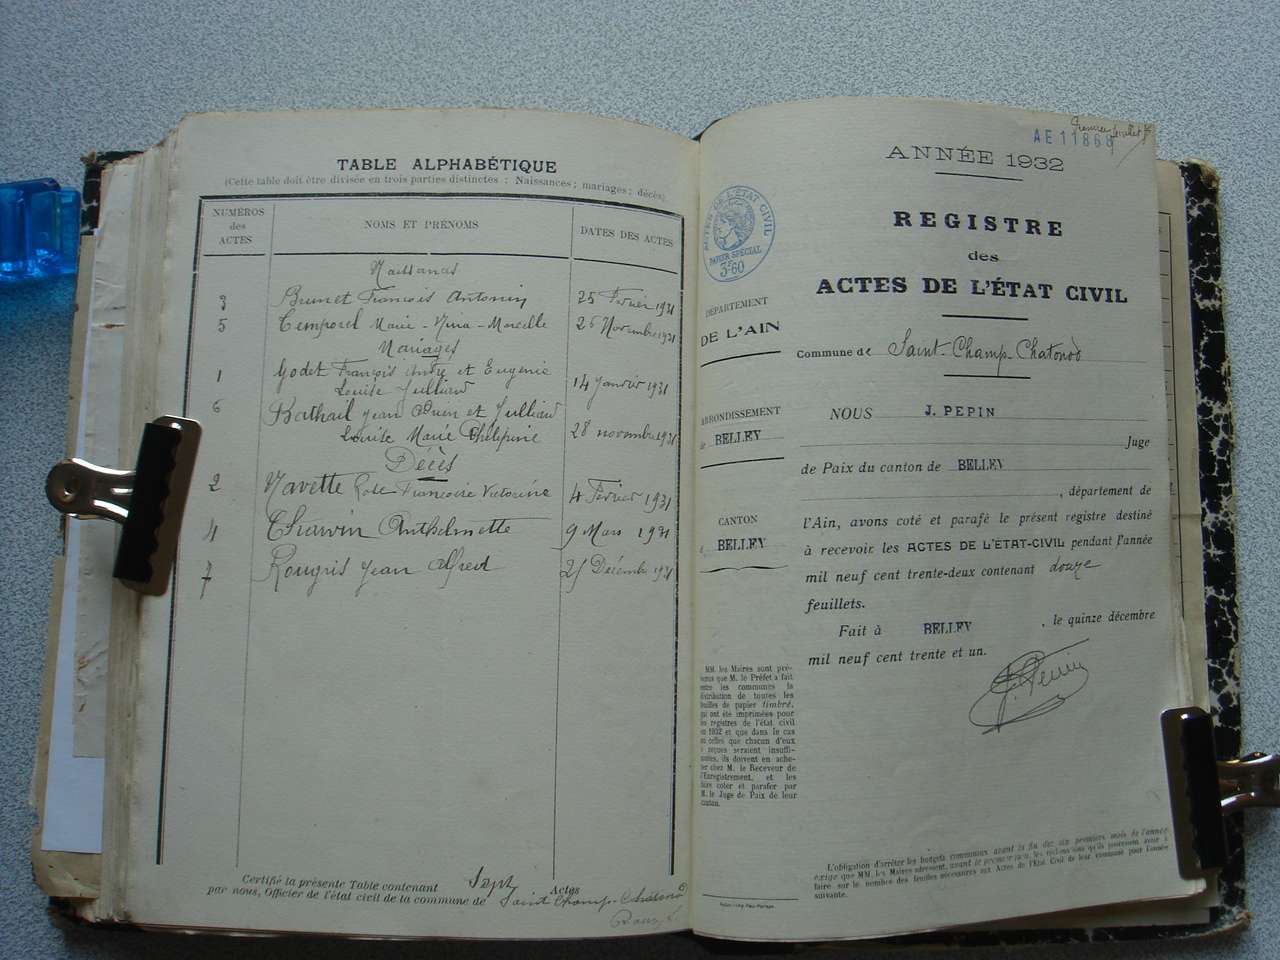 TABLE ALPHABÉTIQUE
(Cette table doit être divisée en trois parties distinctes : Naissances ; mariages ; décès).
NUMÉROS des ACTES
NOMS ET PRÉNOMS
DATES DES ACTES
Naissances
3 Brunet François Antonin 25 Février 1931
5 Temporel Marie - Nina - Marcelle 26 Novembre 1931
Mariages
1 Godet François André et Eugénie
Louise Julliand 14 Janvier 1931
6 Jean et Julliand
Louise Marie 28 novembre 1931
Décès
2 Navette Rose Françoise Victorine 4 Février 1931
4 Charvin Anthelmette 9 Mars 1931
7 Rougris Jean Alfred 25 Décembre 1931
Certifié la présente Table contenant Sept Actes
par nous, Officier de l'état civil de la commune de Saint Champ-Chatonod
Premier feuillet
AE 11868
ANNÉE 1932
REGISTRE
des
ACTES DE L'ÉTAT CIVIL
ACTES DE L'ÉTAT CIVIL
PAPIER SPÉCIAL
3F60
DÉPARTEMENT
DE L'AIN
Commune de Saint-Champ-Chatonod
ARRONDISSEMENT
de BELLEY
CANTON
de BELLEY
NOUS J. PEPIN
Juge
de Paix du canton de BELLEY
, département de
l'Ain, avons coté et parafé le présent registre destiné
à recevoir les ACTES DE L'ÉTAT-CIVIL pendant l'année
mil neuf cent trente-deux contenant douze
feuillets.
Fait à BELLEY , le quinze décembre
mil neuf cent trente et un.
J. Pepin
MM. les Maires sont pré-
venus que M. le Préfet a fait
entre les communes la
distribution de toutes les
feuilles de papier timbré,
qui ont été imprimées pour
les registres de l'état civil
en 1932 et que dans le cas
où celles que chacun d'eux
a reçues seraient insuffi-
santes, ils doivent en ache-
ter chez M. le Receveur de
l'Enregistrement, et les
faire coter et parafer par
M. le Juge de Paix de leur
canton.
L'obligation d'arrêter les budgets communaux avant la fin des six premiers mois de l'année
exige que MM. les Maires adressent, avant le premier juin, les réclamations qu'ils pourraient avoir à
faire sur le nombre des feuilles nécessaires aux Actes de l'État Civil de leur commune pour l'année
suivante.